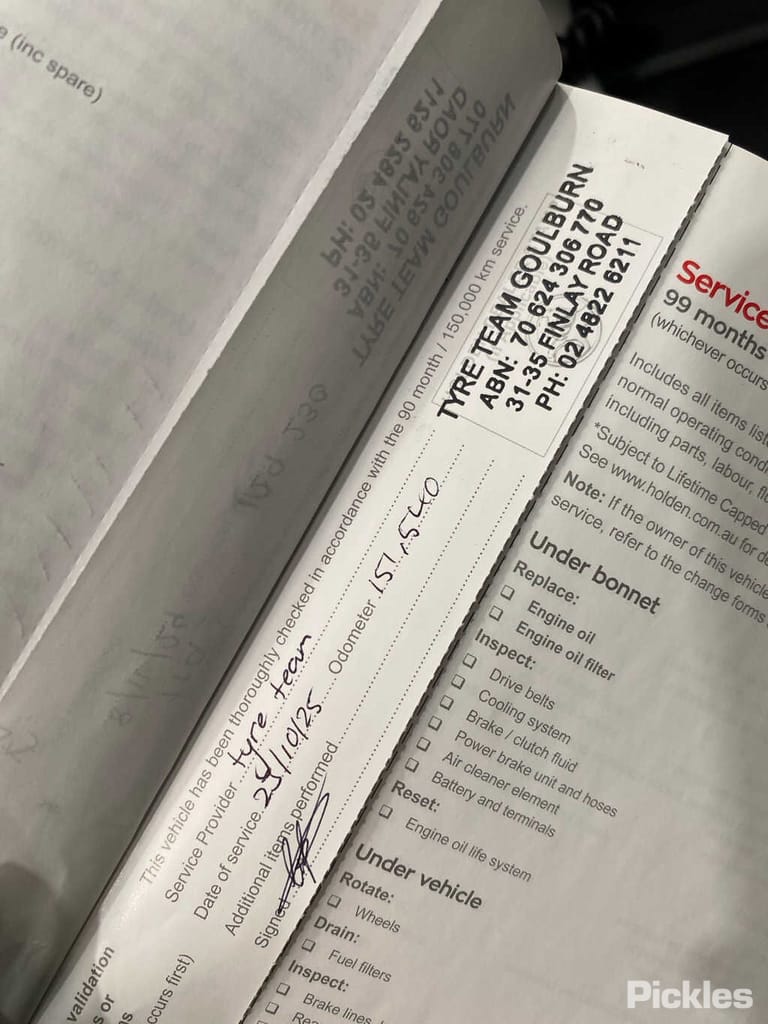 e (inc spare)
This vehicle has been thoroughly checked in accordance with the 90 month / 150,000 km service.
Service Provider tyre team
Date of service 23/10/25 Odometer 151,540
Additional items performed
Signed
TYRE TEAM GOULBURN
ABN: 70 624 306 770
31-35 FINLAY ROAD
PH: 02 4822 6211
validation
s or
ns
ccurs first)
Service
99 months
(whichever occurs
Includes all items list
normal operating cond
including parts, labour, fl
*Subject to Lifetime Capped
See www.holden.com.au for de
Note: If the owner of this vehicle
service, refer to the change forms
Under bonnet
Replace:
Engine oil
Engine oil filter
Inspect:
Drive belts
Cooling system
Brake / clutch fluid
Power brake unit and hoses
Air cleaner element
Battery and terminals
Reset:
Engine oil life system
Under vehicle
Rotate:
Wheels
Drain:
Fuel filters
Inspect:
Brake lines,
Pickles